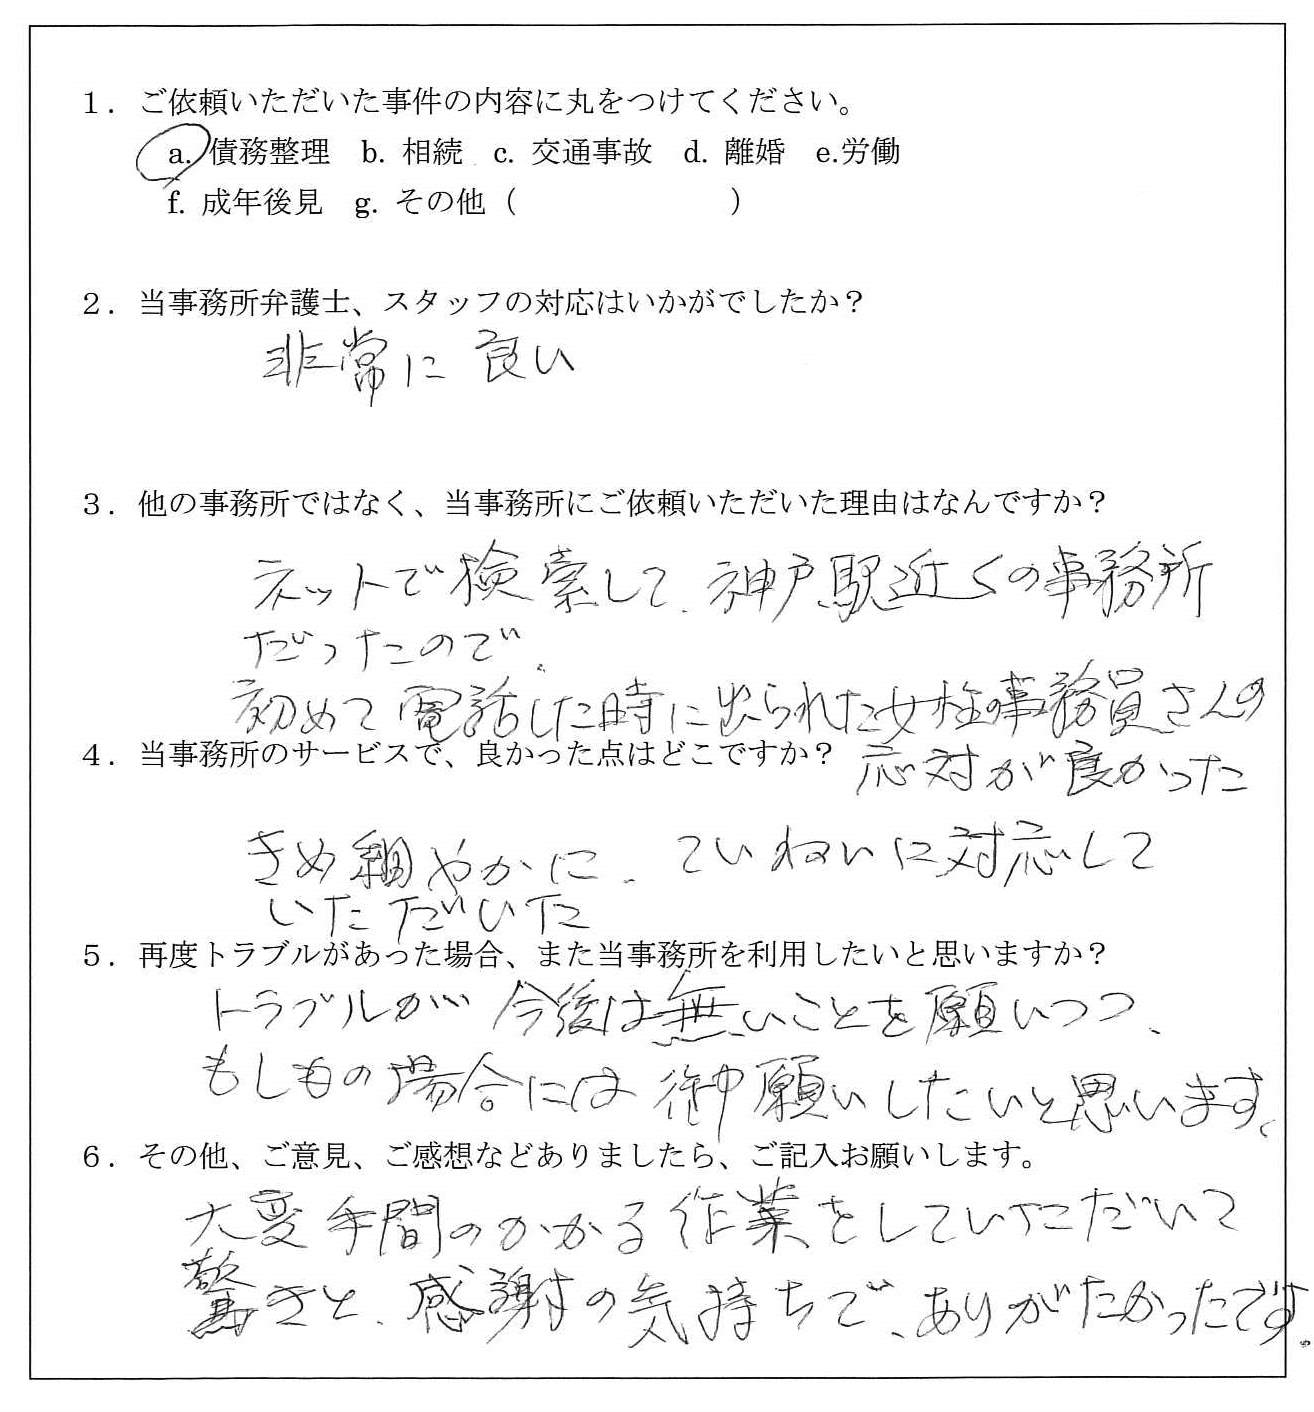 １．ご依頼いただいた事件の内容に丸をつけてください。
a. 債務整理　b. 相続　c. 交通事故　d. 離婚　e.労働
f. 成年後見　g. その他（　　　　　　　）
２．当事務所弁護士、スタッフの対応はいかがでしたか？
非常に良い
３．他の事務所ではなく、当事務所にご依頼いただいた理由はなんですか？
ネットで検索して、神戸駅近くの事務所
だったので、
初めて電話した時に出られた女性の事務員さんの
応対が良かった
４．当事務所のサービスで、良かった点はどこですか？
きめ細やかに、ていねいに対応して
いただいた
５．再度トラブルがあった場合、また当事務所を利用したいと思いますか？
トラブルが今後は無いことを願いつつ、
もしもの場合には御願いしたいと思います。
６．その他、ご意見、ご感想などありましたら、ご記入お願いします。
大変手間のかかる作業をしていただいて
驚きと、感謝の気持ちで、ありがたかったです。